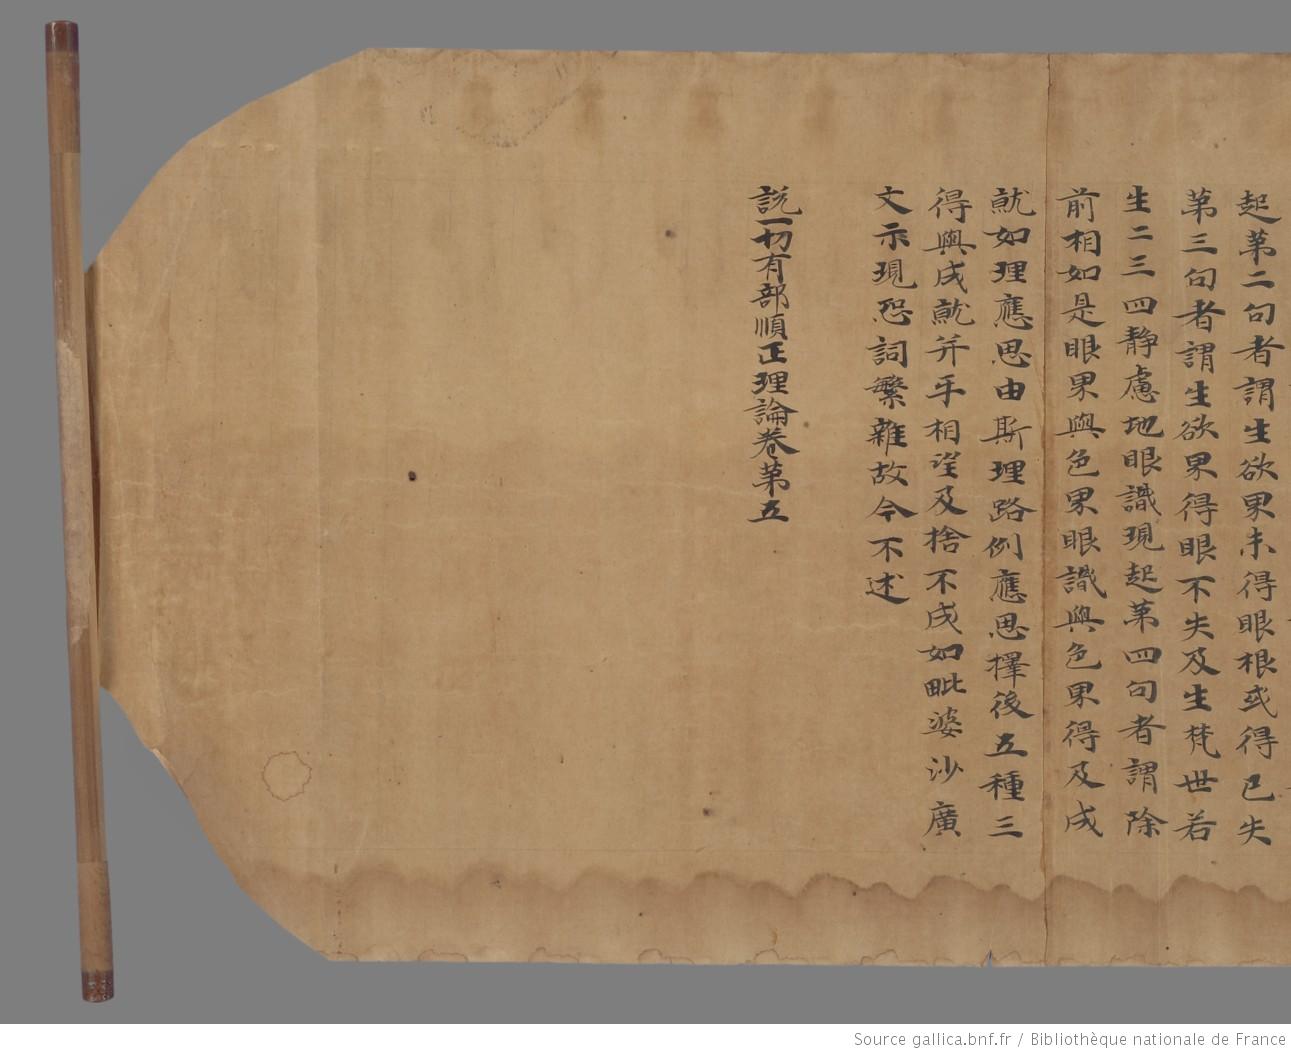 起第二句者謂生欲界未得眼根或得已失
第三句者謂生欲界得眼不失及生梵世若
生二三四静慮地眼識現起第四句者謂除
前相如是眼界與色界眼識與色界得及成
就如理應思由斯理路例應思擇後五種三
得與成就并乎相望及捨不成如毗婆沙廣
文示現恐詞繁雜故今不述
說一切有部順正理論卷第五
Source gallica.bnf.fr / Bibliothèque nationale de France